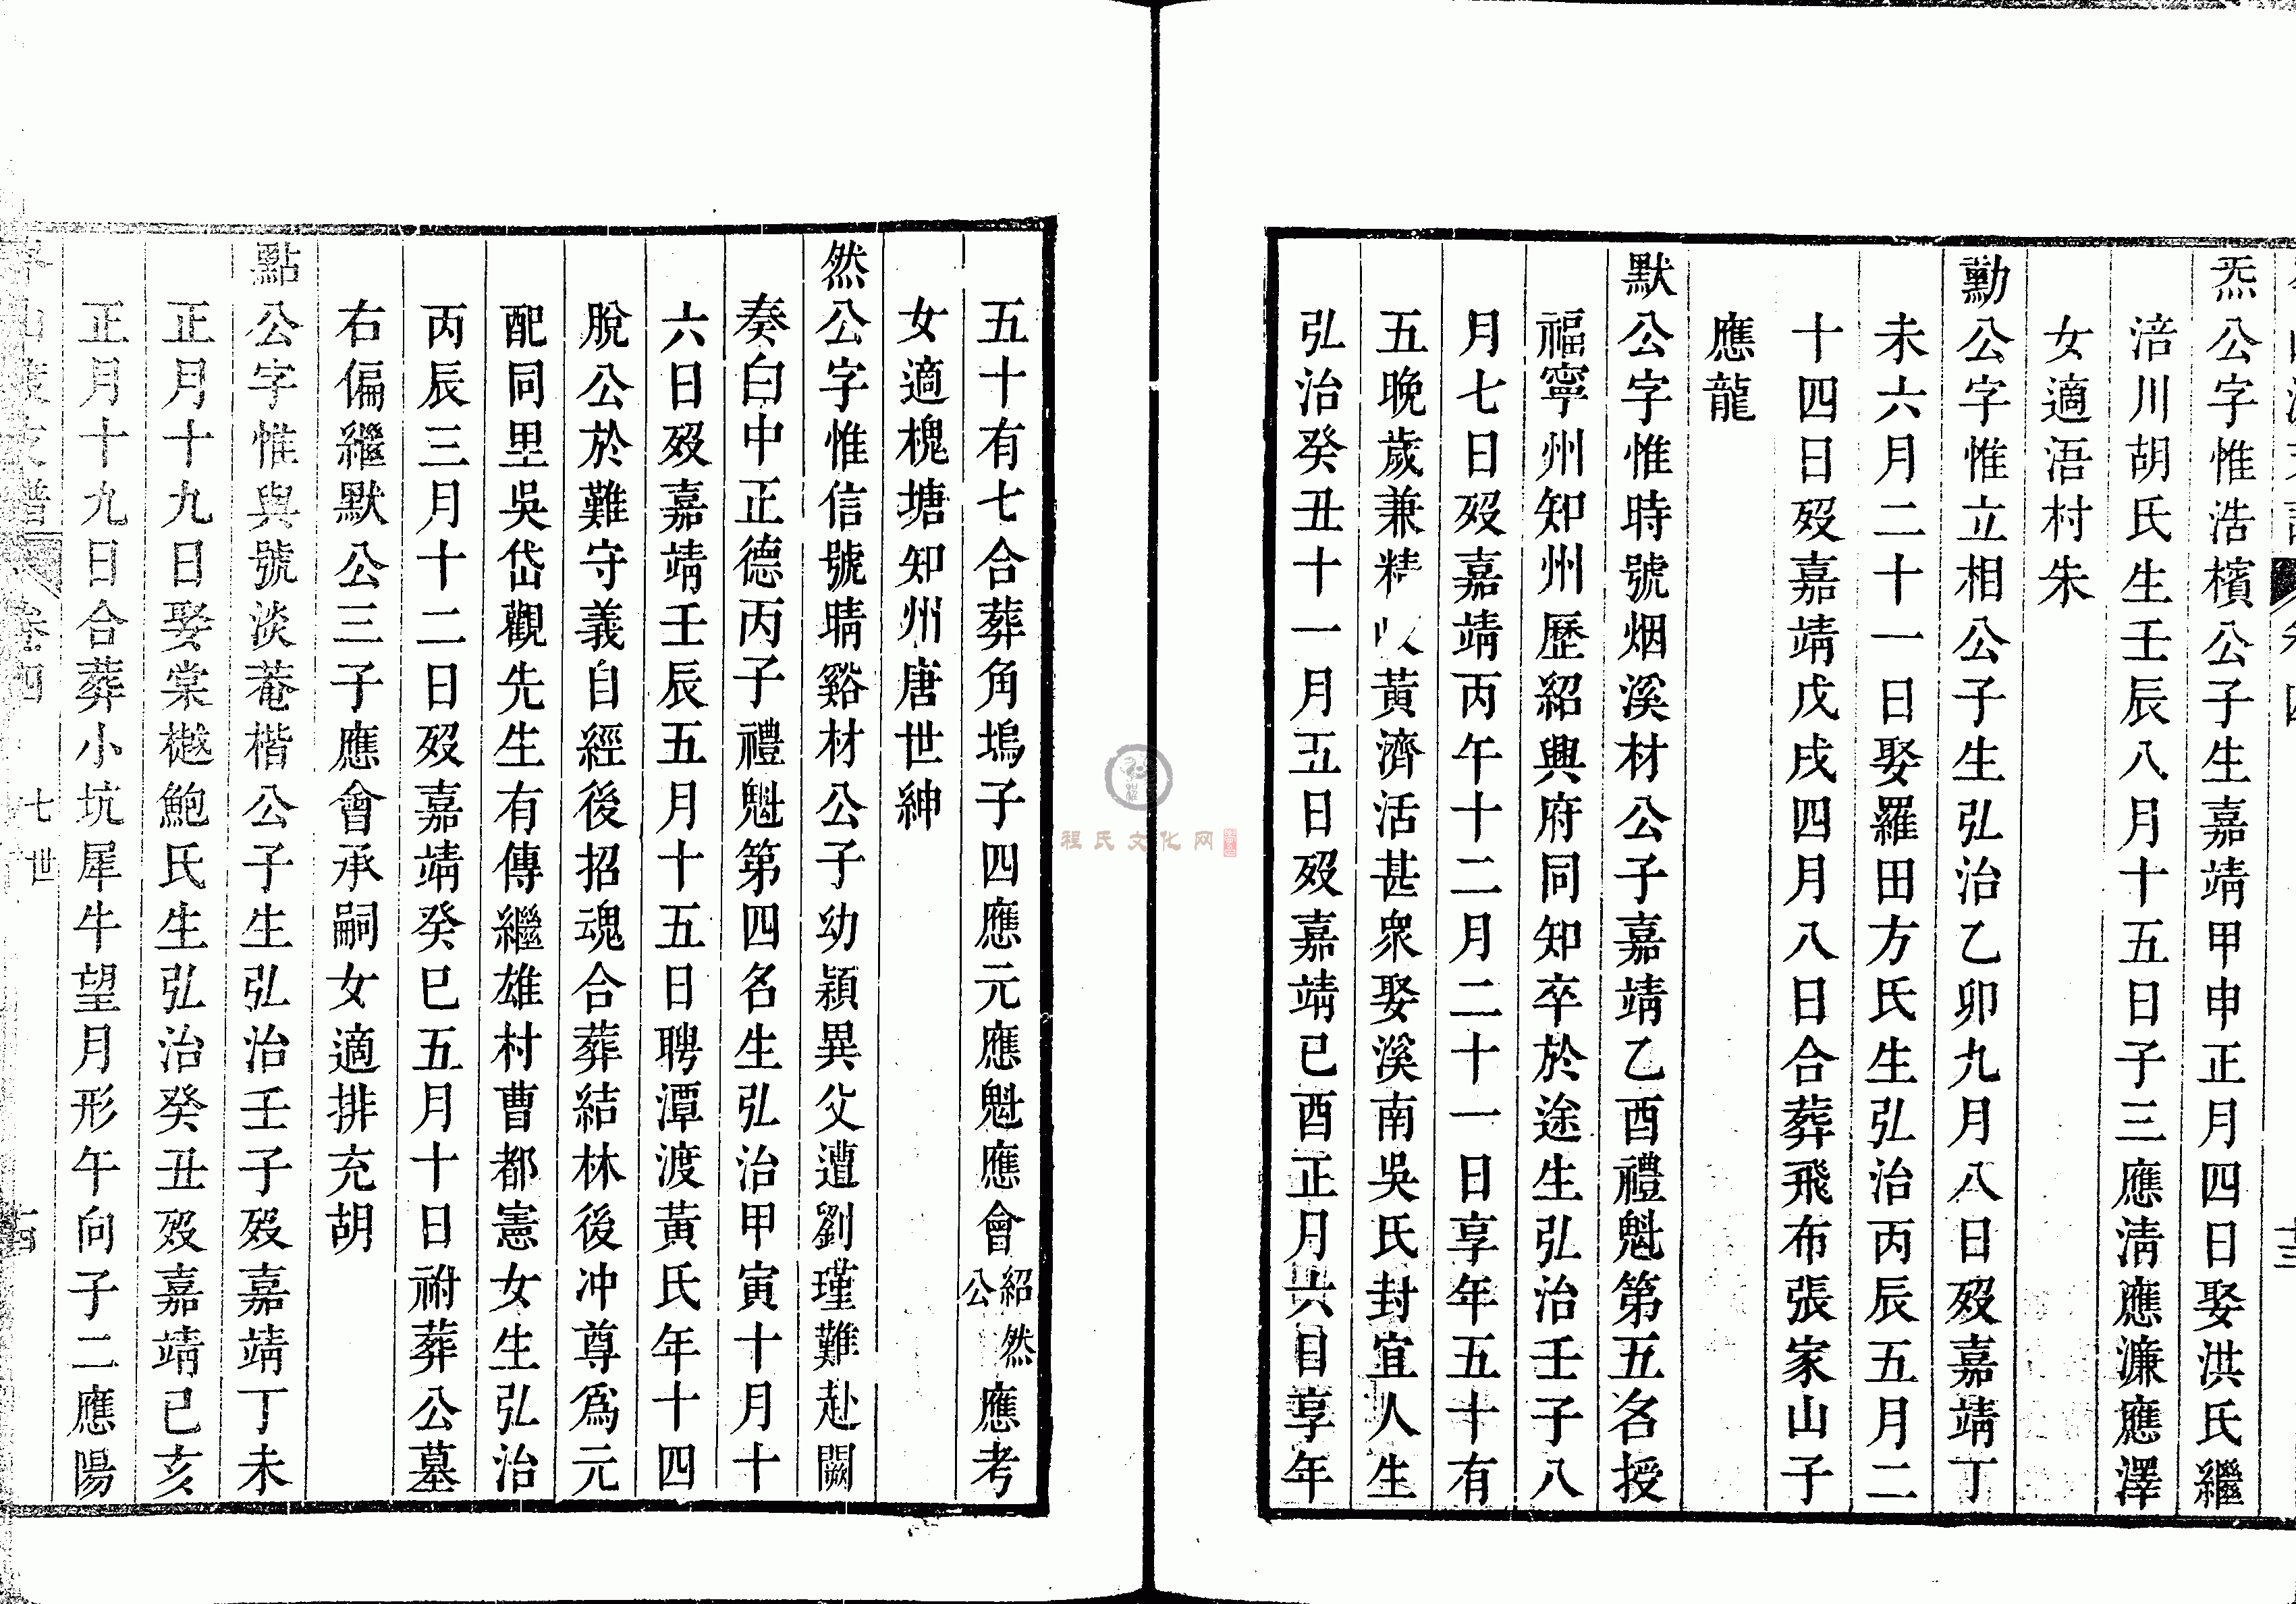 炁公字惟浩檳公子生嘉靖甲申正月四日娶洪氏繼
涪川胡氏生壬辰八月十五日子三應淸應濂應澤
女適浯村朱
勳公字惟立相公子生弘治乙卯九月八日歿嘉靖丁
未六月二十一日娶羅田方氏生弘治丙辰五月二
十四日歿嘉靖戊戌四月八日合葬飛布張家山子
應龍
默公字惟時號烟溪材公子嘉靖乙酉禮魁第五名授
福寧州知州歷紹興府同知卒於途生弘治壬子八
月七日歿嘉靖丙午十二月二十一日享年五十有
五晚歲兼精黃濟活甚衆娶溪南吳氏封宜人生
弘治癸丑十一月五日歿嘉靖已酉正月六日享年
五十有七合葬角塢子四應元應魁應會紹然公應考
女適槐塘知州唐世紳
然公字惟信號晴谿材公子幼穎異父遭劉瑾難赴闕
奏白中正德丙子禮魁第四名生弘治甲寅十月十
六日歿嘉靖壬辰五月十五日聘潭渡黃氏年十四
脫公於難守義自經後招魂合葬結林後冲尊爲元
配同里吳岱觀先生有傳繼雄村曹都憲女生弘治
丙辰三月十二日歿嘉靖癸巳五月十日祔葬公墓
右偏繼默公三子應會承嗣女適排充胡
點公字惟與號淡菴楷公子生弘治壬子歿嘉靖丁未
正月十九日娶棠樾鮑氏生弘治癸丑歿嘉靖已亥
正月十九日合葬小坑犀牛望月形午向子二應陽
支譜 卷四 七世 十四
程氏文化网